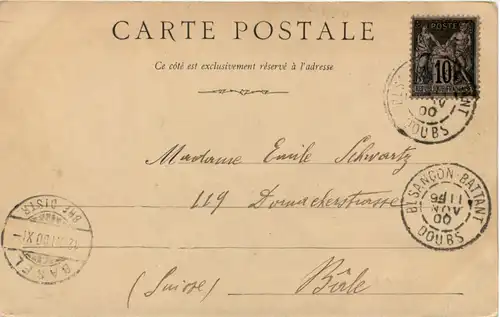 CARTE POSTALE
Ce côté est exclusivement réservé à l'adresse
POSTE
10
BESANÇON-BATTANT
00
DOUBS
Madame Emile Schwartz
119 Dornacherstrasse
BESANÇON-BATTANT
11 E
AVR
00
DOUBS
BRF. DISTR.
12
00 XI
BASEL
(Suisse) Bâle